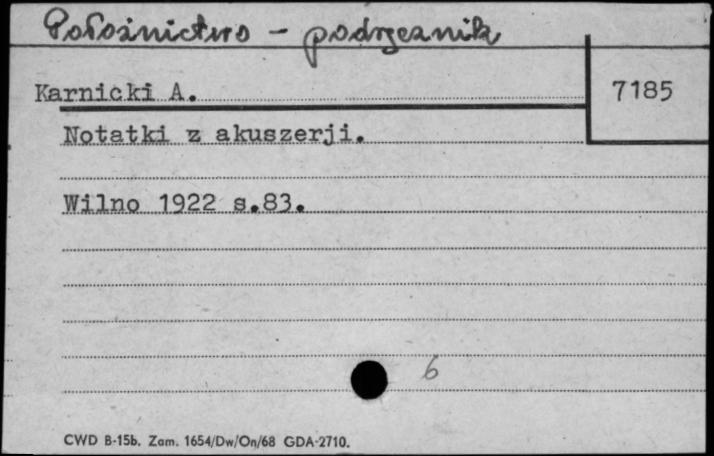 Położnictwo - podręcznik
Karnicki A.
7185
Notatki z akuszerji.
Wilno 1922 s.83.
6
CWD B-15b. Zam. 1654/Dw/On/68 GDA-2710.